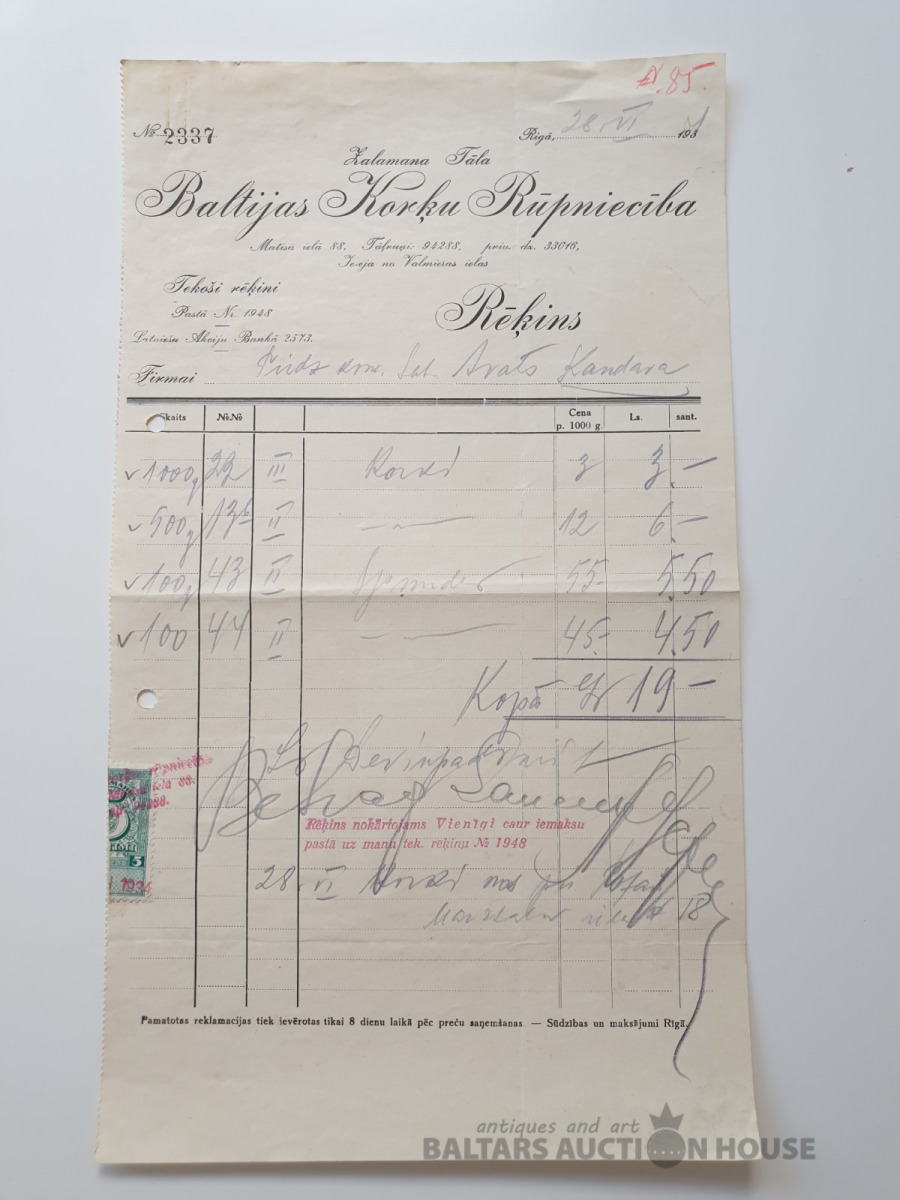 № 85.
№ 2337
Rīgā, 28. VI 193
Zalamana Tāla
Baltijas Korķu Rūpniecība
Matīsa ielā 88. Tāļruņi: 94288, priv. dz. 33016,
Ie-eja no Valmieras ielas
Tekoši rēķini
Pastā Nr. 1948
Latviešu Akciju Bankā 2573.
Rēķins
Firmai Arats Kandava
Skaits №№ Cena p. 1000 g. Ls. sant.
1000g 22 III Korķi 3 3.—
500g 13 II —"— 12 6.—
100g 43 II 55.- 5.50
100 44 II —"— 45.- 4.50
Kopā Ls 19 —
Ls Deviņpadsmit
Rēķins nokārtojams Vienīgi caur iemaksu
pastā uz manu tek. rēķinu № 1948
ielā 88.
94288.
5
1934
28. VI Korķi
18
Pamatotas reklamacijas tiek ievērotas tikai 8 dienu laikā pēc preču saņemšanas. — Sūdzības un maksājumi Rīgā.
antiques and art
BALTARS AUCTION HOUSE